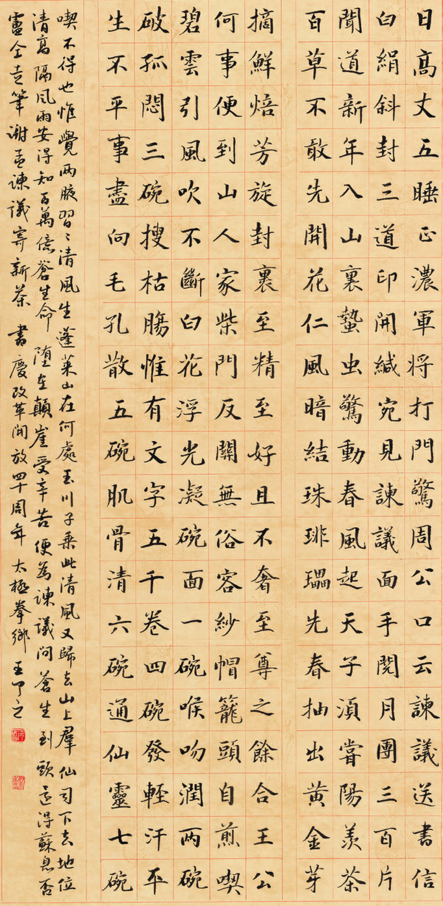 日高丈五睡正濃軍將打門驚周公口云諫議送書信
白絹斜封三道印開緘宛見諫議面手閱月團三百片
聞道新年入山裏蟄虫驚動春風起天子湏嘗陽羨茶
百草不敢先開花仁風暗結珠琲瓃先春抽出黃金芽
摘鮮焙芳旋封裹至精至好且不奢至尊之餘合王公
何事便到山人家柴門反關無俗客紗帽籠頭自煎喫
碧雲引風吹不斷白花浮光凝碗面一碗喉吻潤兩碗
破孤悶三碗搜枯腸惟有文字五千卷四碗發輕汗平
生不平事盡向毛孔散五碗肌骨清六碗通仙靈七碗
喫不得也惟覺兩腋習〻清風生蓬萊山在何處玉川子乘此清風又歸去山上羣仙司下去地位
清高隔風雨安得知百萬億蒼生命墮在顛崖受辛苦便為諫議問蒼生到頭還得蘇息否
盧仝走筆謝孟諫議寄新茶 書慶改革開放四十周年 太極拳鄉 王